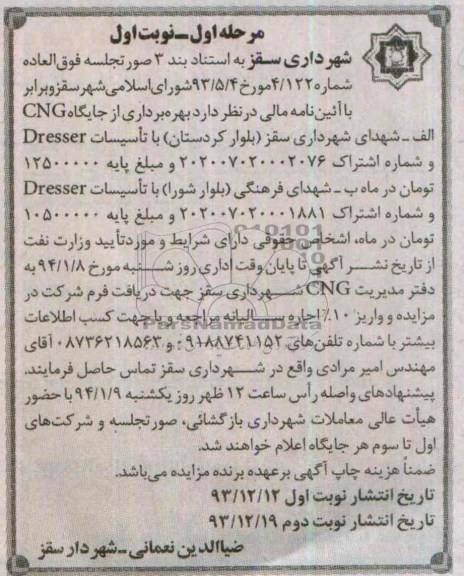 مرحله اول ـ نوبت اول
شهرداری سقز به استناد بند ۳ صورتجلسه فوق‌العاده
شماره ۴/۱۲۲مورخ ۹۳/۵/۴شورای‌اسلامی شهر سقز و برابر
با آئین‌نامه مالی در نظر دارد بهره‌برداری از جایگاه CNG
الف ـ شهدای شهرداری سقز (بلوار کردستان) با تأسیسات Dresser
و شماره اشتراک ۲۰۲۰۰۷۰۲۰۰۰۲۰۷۶ و مبلغ پایه ۱۲۵۰۰۰۰۰
تومان در ماه ب ـ شهدای فرهنگی (بلوار شورا) با تأسیسات Dresser
و شماره اشتراک ۲۰۲۰۰۷۰۲۰۰۰۱۸۸۱ و مبلغ پایه ۱۰۵۰۰۰۰۰
تومان در ماه، اشخاص حقوقی دارای شرایط و مورد تأیید وزارت نفت
از تاریخ نشر آگهی تا پایان وقت اداری روز شنبه مورخ ۹۴/۱/۸ به
دفتر مدیریت CNG شهرداری سقز جهت دریافت فرم شرکت در
مزایده و واریز ۱۰٪ اجاره سالیانه مراجعه و یا جهت کسب اطلاعات
بیشتر با شماره تلفن‌های ۰۹۱۸۸۷۴۱۱۵۲ و ۰۸۷۳۶۲۱۸۵۶۳ آقای
مهندس امیر مرادی واقع در شهرداری سقز تماس حاصل فرمایند.
پیشنهادهای واصله رأس ساعت ۱۲ ظهر روز یکشنبه ۹۴/۱/۹ با حضور
هیأت عالی معاملات شهرداری بازگشائی، صورتجلسه و شرکت‌های
اول تا سوم هر جایگاه اعلام خواهند شد.
ضمناً هزینه چاپ آگهی بر عهده برنده مزایده می‌باشد.
تاریخ انتشار نوبت اول ۹۳/۱۲/۱۲
تاریخ انتشار نوبت دوم ۹۳/۱۲/۱۹
ضیاالدین نعمانی ـ شهردار سقز
ParsNamadData